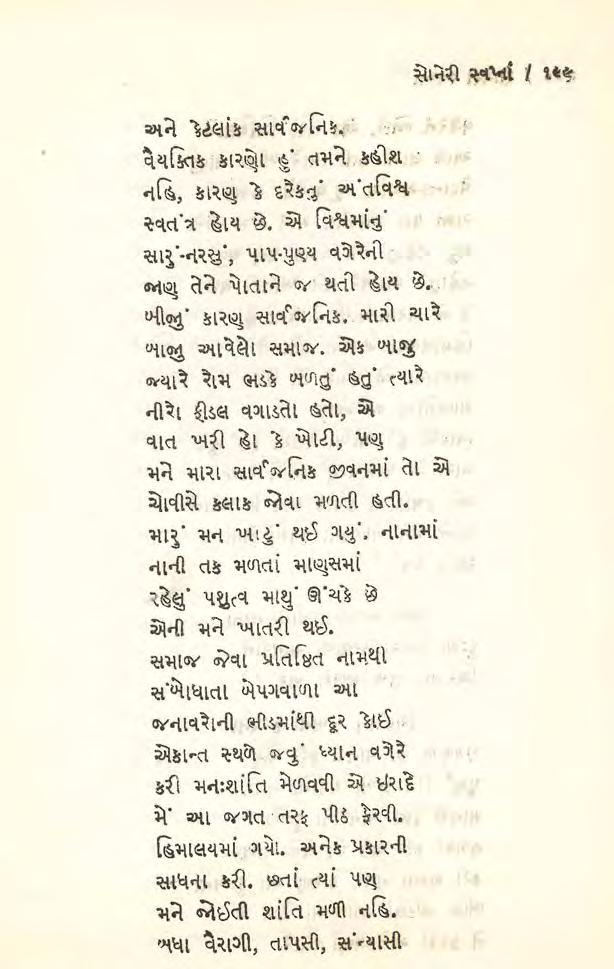 સોનેરી સ્વપ્નાં / ૧૯૯
અને કેટલાંક સાર્વજનિક.
વૈયક્તિક કારણો હું તમને કહીશ
નહિ, કારણ કે દરેકનું અંતવિશ્વ
સ્વતંત્ર હોય છે. એ વિશ્વમાંનું
સારું-નરસું, પાપ-પુણ્ય વગેરેની
જાણ તેને પોતાને જ થતી હોય છે.
બીજું કારણ સાર્વજનિક. મારી ચારે
બાજુ આવેલો સમાજ. એક બાજુ
જ્યારે રોમ ભડકે બળતું હતું ત્યારે
નીરો ફીડલ વગાડતો હતો, એ
વાત ખરી હો કે ખોટી, પણ
મને મારા સાર્વજનિક જીવનમાં તો એ
ચોવીસે કલાક જોવા મળતી હતી.
મારું મન ખાટું થઈ ગયું. નાનામાં
નાની તક મળતાં માણસમાં
રહેલું પશુત્વ માથું ઊંચકે છે
એની મને ખાતરી થઈ.
સમાજ જેવા પ્રતિષ્ઠિત નામથી
સંબોધાતા બેપગવાળા આ
જનાવરોની ભીડમાંથી દૂર કોઈ
એકાન્ત સ્થળે જવું ધ્યાન વગેરે
કરી મનઃશાંતિ મેળવવી એ ઇરાદે
મેં આ જગત તરફ પીઠ ફેરવી.
હિમાલયમાં ગયો. અનેક પ્રકારની
સાધના કરી. છતાં ત્યાં પણ
મને જોઈતી શાંતિ મળી નહિ.
બધા વૈરાગી, તાપસી, સંન્યાસી